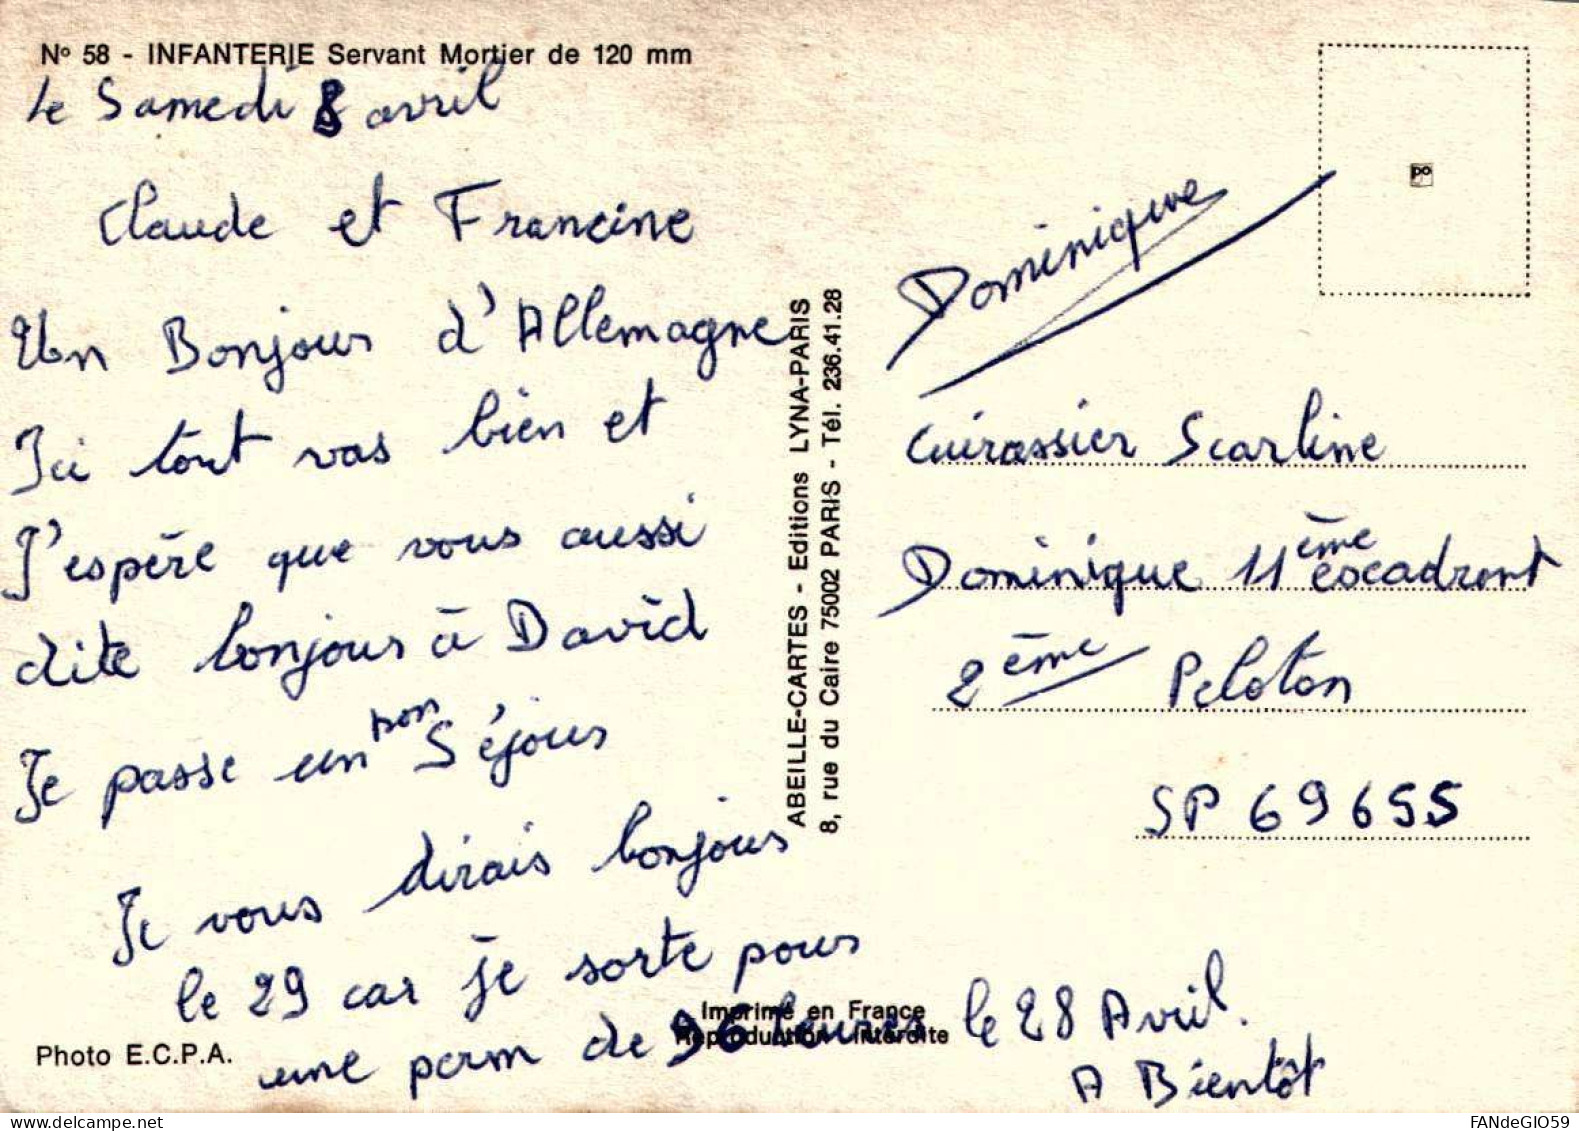 N° 58 - INFANTERIE Servant Mortier de 120 mm
Le Samedi 8 avril
Claude et Francine
Un Bonjour d'Allemagne
Ici tout vas bien et
J'espère que vous aussi
dite bonjour à David
Je passe un bon Séjour
Je vous dirais bonjour
le 29 car je sorte pour
une perm de 96 heures le 28 Avril.
A Bientôt
Photo E.C.P.A.
Imprimé en France
Reproduction interdite
ABEILLE-CARTES - Editions LYNA-PARIS
8, rue du Caire 75002 PARIS - Tél. 236.41.28
Dominique
Cuirassier Scarline
Dominique 11ème escadront
2ème Peloton
SP 69655
FANdeGIO59